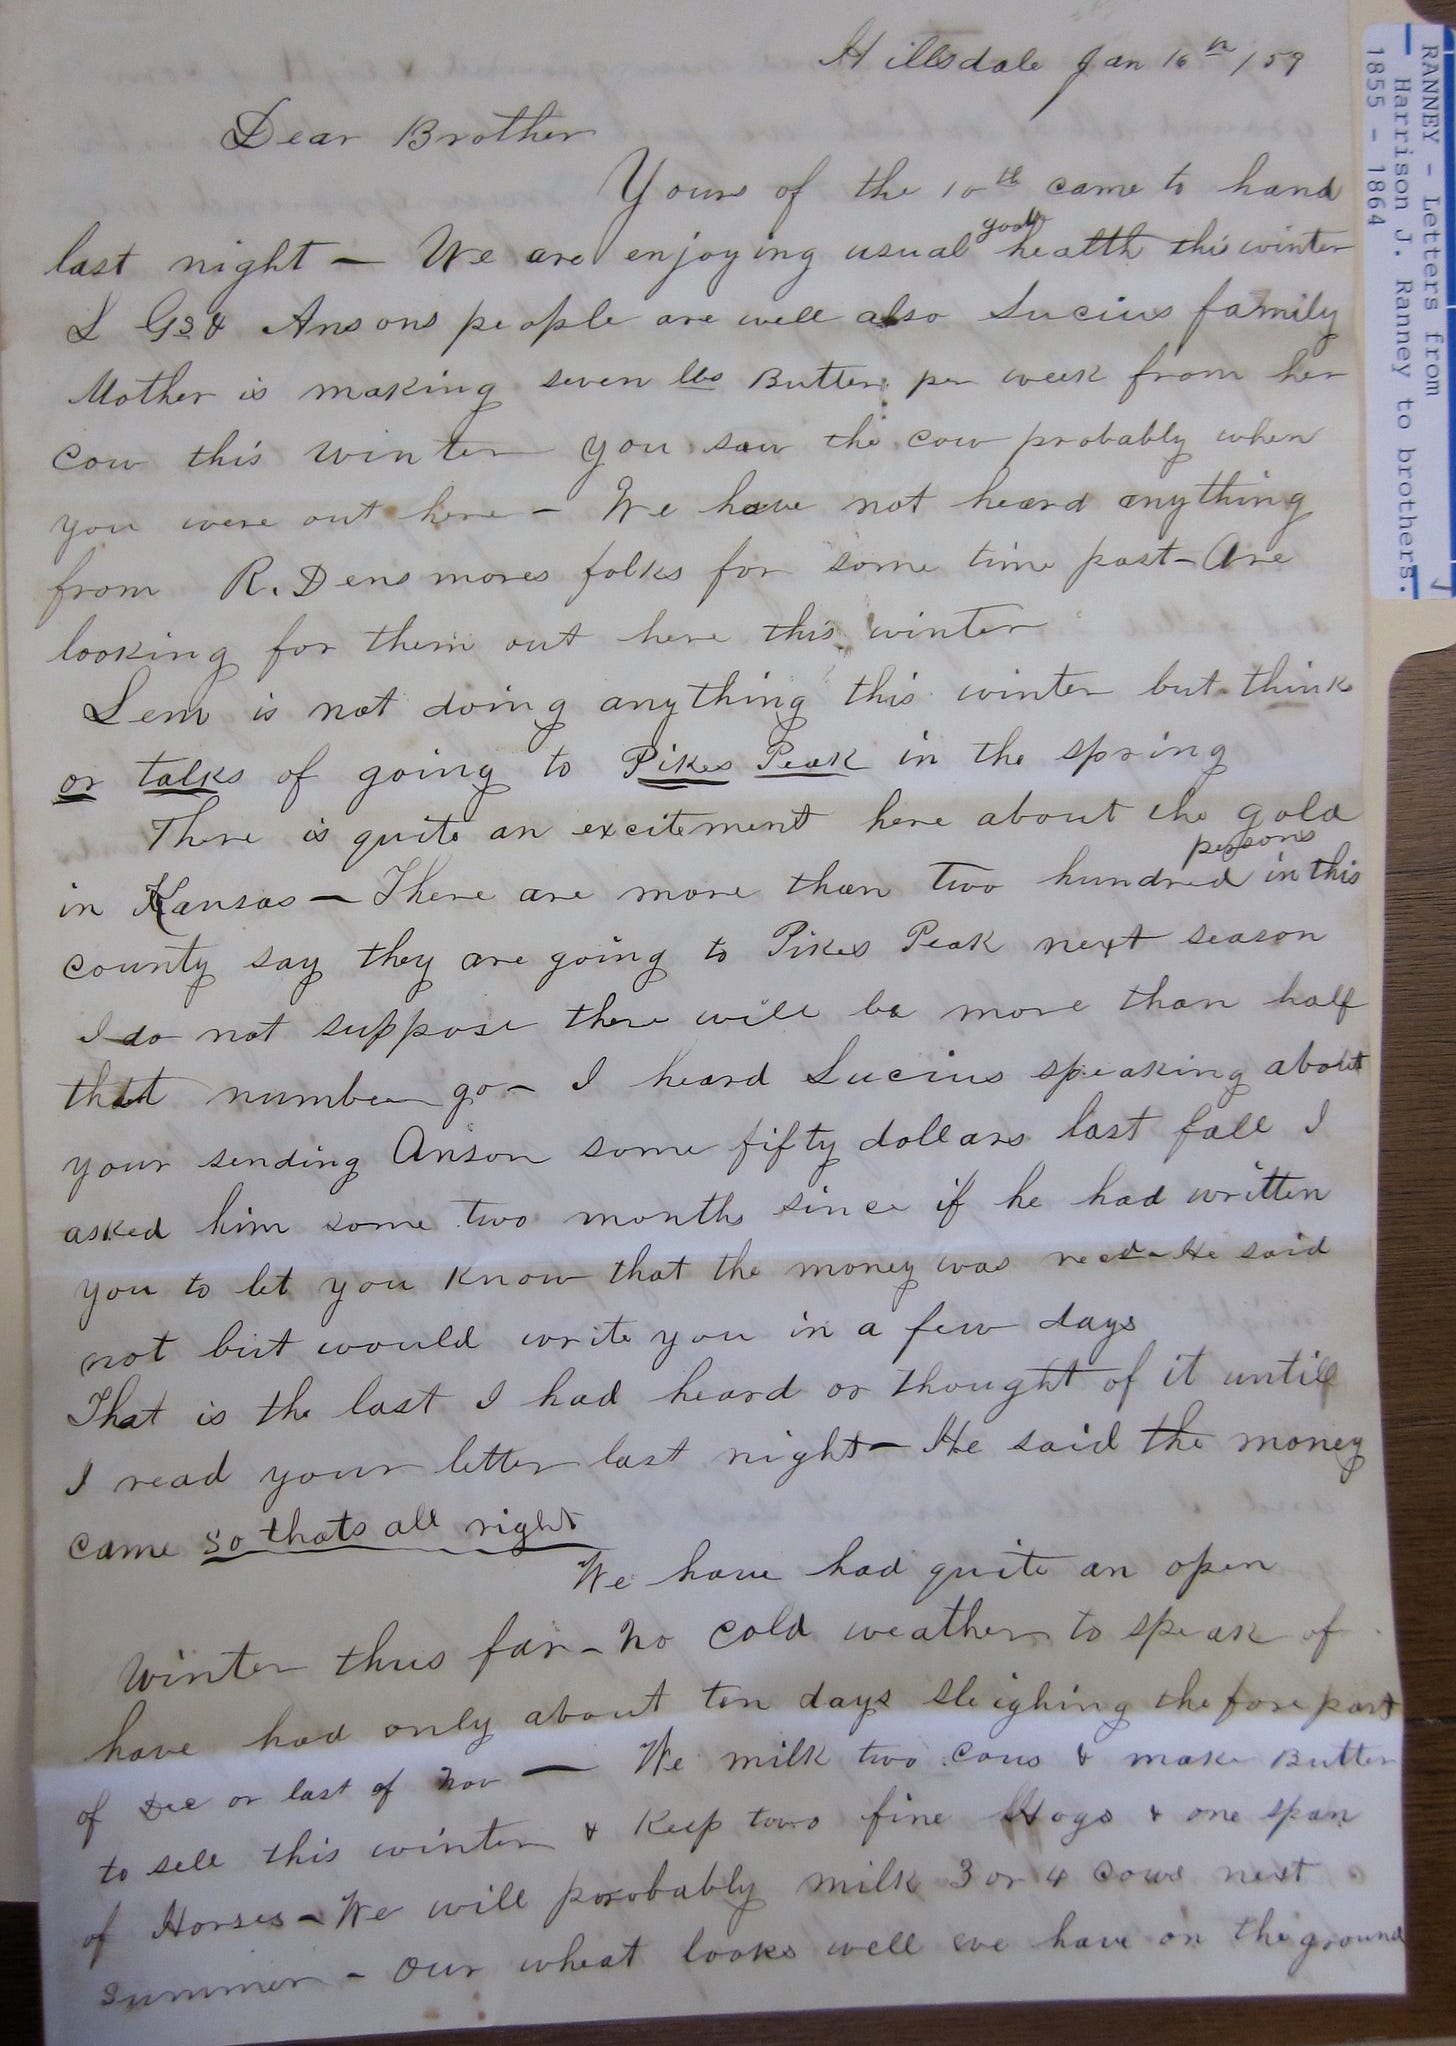 Hillsdale Jan 16th /59
Dear Brother
Yours of the 10th came to hand
last night — We are enjoying usual good health this winter
L Gs & Ansons people are well also Lucius family
Mother is making seven lbs Butter per week from her
cow this winter you saw the cow probably when
you were out here — We have not heard anything
from R. Densmores folks for some time past — Are
looking for them out here this winter
Lem is not doing anything this winter but think
or talks of going to Pikes Peak in the spring
There is quite an excitement here about the gold
in Kansas — There are more than two hundred persons in this
county say they are going to Pikes Peak next season
I do not suppose there will be more than half
that number go — I heard Lucius speaking about
your sending Anson some fifty dollars last fall I
asked him some two months since if he had written
you to let you know that the money was recd — He said
not but would write you in a few days
That is the last I had heard or thought of it untill
I read your letter last night — He said the money
came so thats all right
We have had quite an open
Winter thus far — No cold weather to speak of
have had only about ten days sleighing the fore part
of Dec or last of Nov — We milk two cows & make Butter
to sell this winter & Keep two fine Hogs & one span
of Horses — We will probably milk 3 or 4 cows next
summer — Our wheat looks well we have on the ground
RANNEY - Letters from
Harrison J. Ranney to brothers.
1855 - 1864